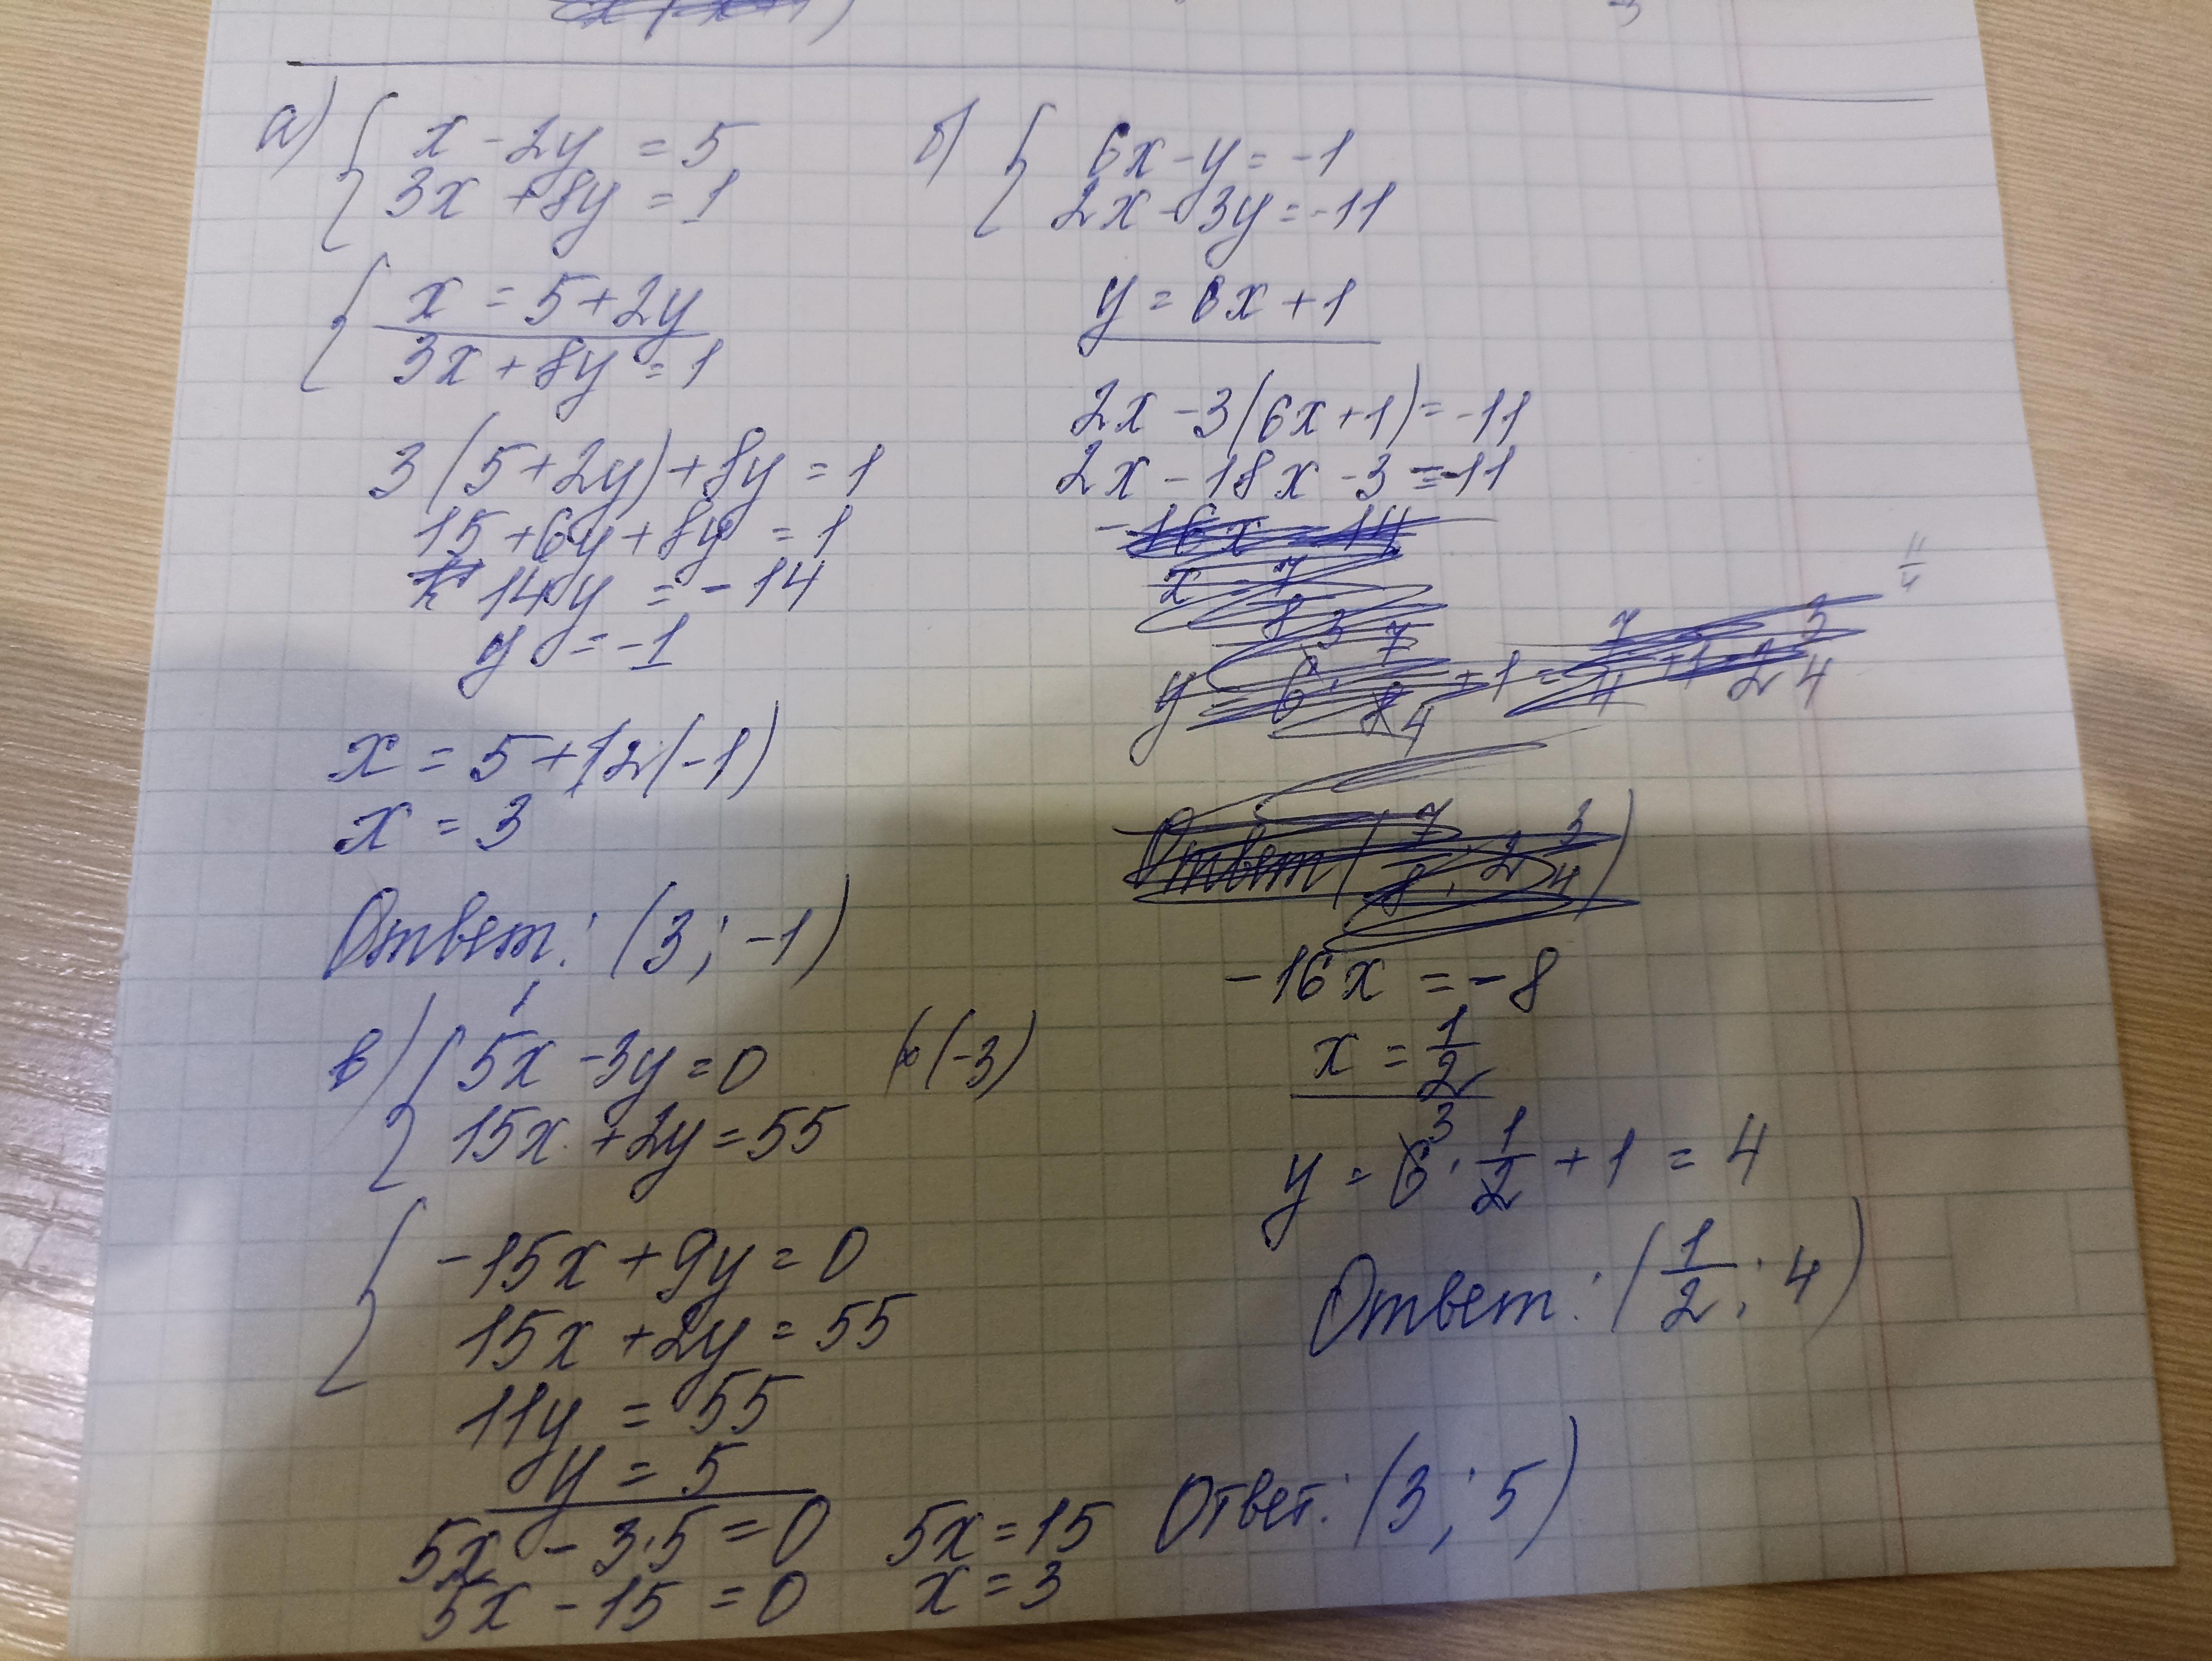 а) { x - 2y = 5
3x + 8y = 1
{ x = 5 + 2y
3x + 8y = 1
3(5 + 2y) + 8y = 1
15 + 6y + 8y = 1
14y = -14
y = -1
x = 5 + 2(-1)
x = 3
Ответ: (3; -1)
б) { 6x - y = -1
2x - 3y = -11
y = 6x + 1
2x - 3(6x + 1) = -11
2x - 18x - 3 = -11
-16x = -14
x = 7/8
y = 6 · 7/8 + 1 = 7/4 + 1 = 2 3/4
11/4
Ответ (7/8; 2 3/4)
-16x = -8
x = 1/2
y = 6 · 1/2 + 1 = 4
Ответ: (1/2; 4)
в) { 5x - 3y = 0 |·(-3)
15x + 2y = 55
{ -15x + 9y = 0
15x + 2y = 55
11y = 55
y = 5
5x - 3·5 = 0
5x - 15 = 0
5x = 15
x = 3
Ответ: (3; 5)